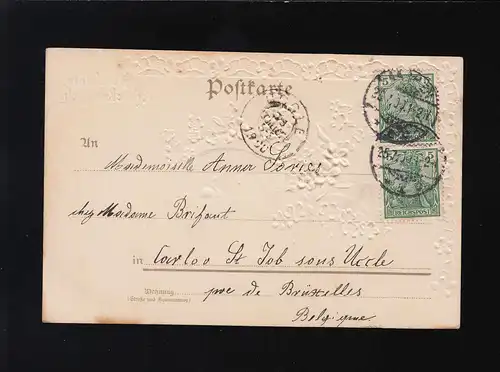 Postkarte
An
Mademoiselle Anna
chez Madame Brifaut
in Carloo St Job sous Uccle
Wohnung
(Straße und Hausnummer)
pre de Bruxelles
Belgique
UCCLE
1900
REICHSPOST